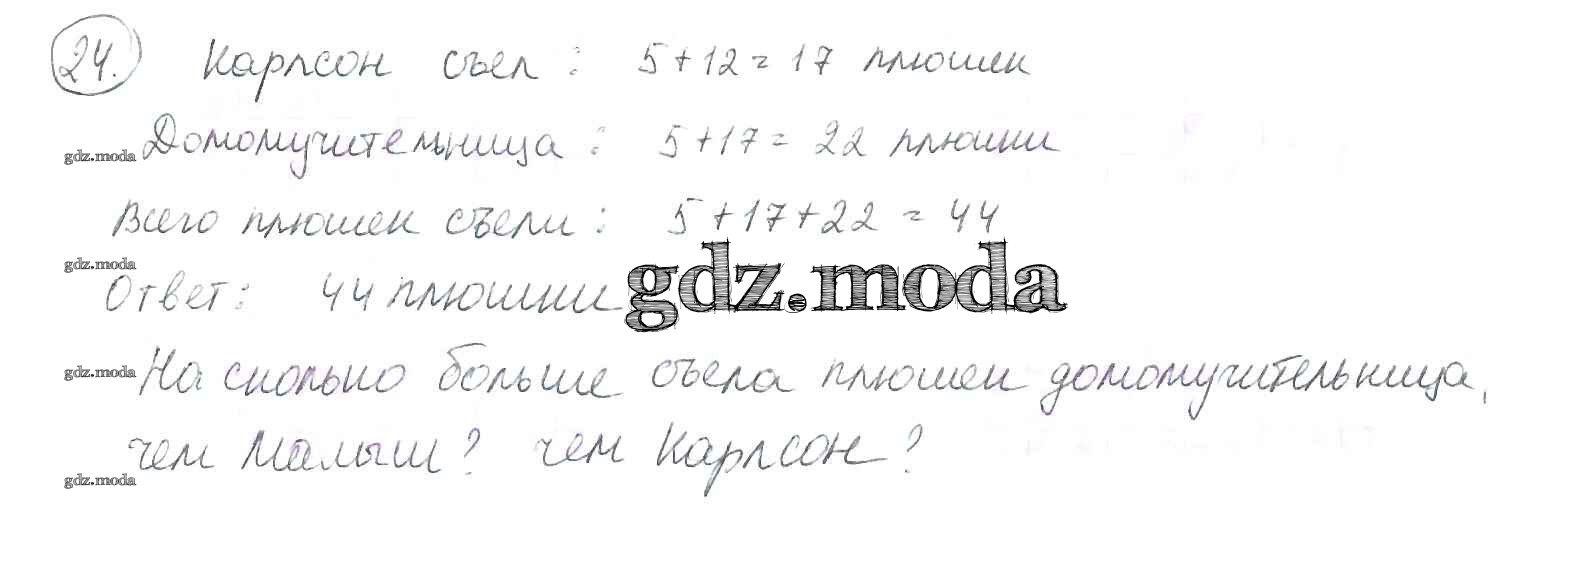 24. Карлсон съел: 5+12=17 плюшек
gdz.moda Домомучительница: 5+17=22 плюшки
Всего плюшек съели: 5+17+22=44
gdz.moda
Ответ: 44 плюшки gdz.moda
gdz.moda На сколько больше съела плюшек домомучительница,
чем Малыш? чем Карлсон?
gdz.moda